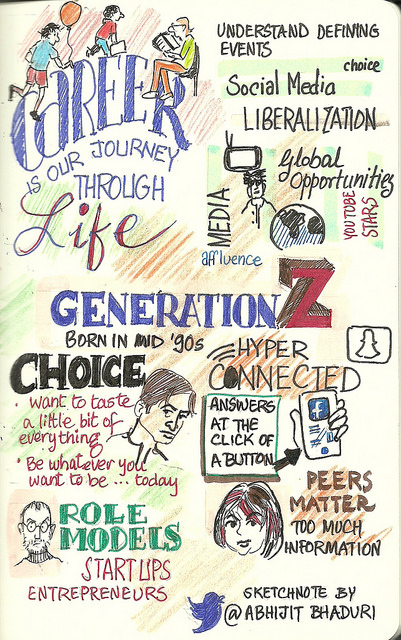 CAREER
IS OUR JOURNEY
THROUGH
Life
UNDERSTAND DEFINING
EVENTS
choice
Social Media
LIBERALIZATION
global
Opportunities
MEDIA
YOUTUBE
STARS
affluence
GENERATION Z
BORN IN MID '90s
CHOICE
• want to taste
a little bit of
everything
• Be whatever you
want to be ... today
HYPER
CONNECTED
ANSWERS
AT THE
CLICK OF
A BUTTON
f
PEERS
MATTER
TOO MUCH
INFORMATION
ROLE
MODELS
START UPS
ENTREPRENEURS
SKETCHNOTE BY
@ABHIJIT BHADURI